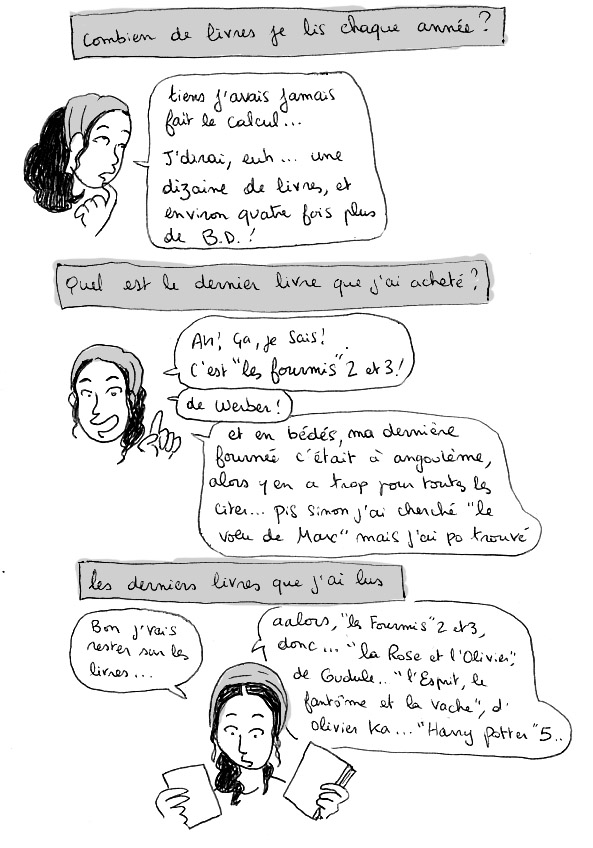 Combien de livres je lis chaque année ?
tiens j'avais jamais
fait le calcul...
J'dirai, euh... une
dizaine de livres, et
environ quatre fois plus
de B.D. !
Quel est le dernier livre que j'ai acheté ?
Ah! Ça, je sais!
C'est "les fourmis" 2 et 3!
de Werber!
et en bédés, ma dernière
fournée c'était à angoulème,
alors y en a trop pour toutes les
citer... pis sinon j'ai cherché "le
voeu de Marc" mais j'ai po trouvé
les derniers livres que j'ai lus
Bon j'vais
rester sur les
livres...
aalors, "les Fourmis" 2 et 3,
donc... "la Rose et l'Olivier",
de Gudule.. "l'Esprit, le
fantôme et la vache", d'
Olivier Ka... "Harry Potter" 5..